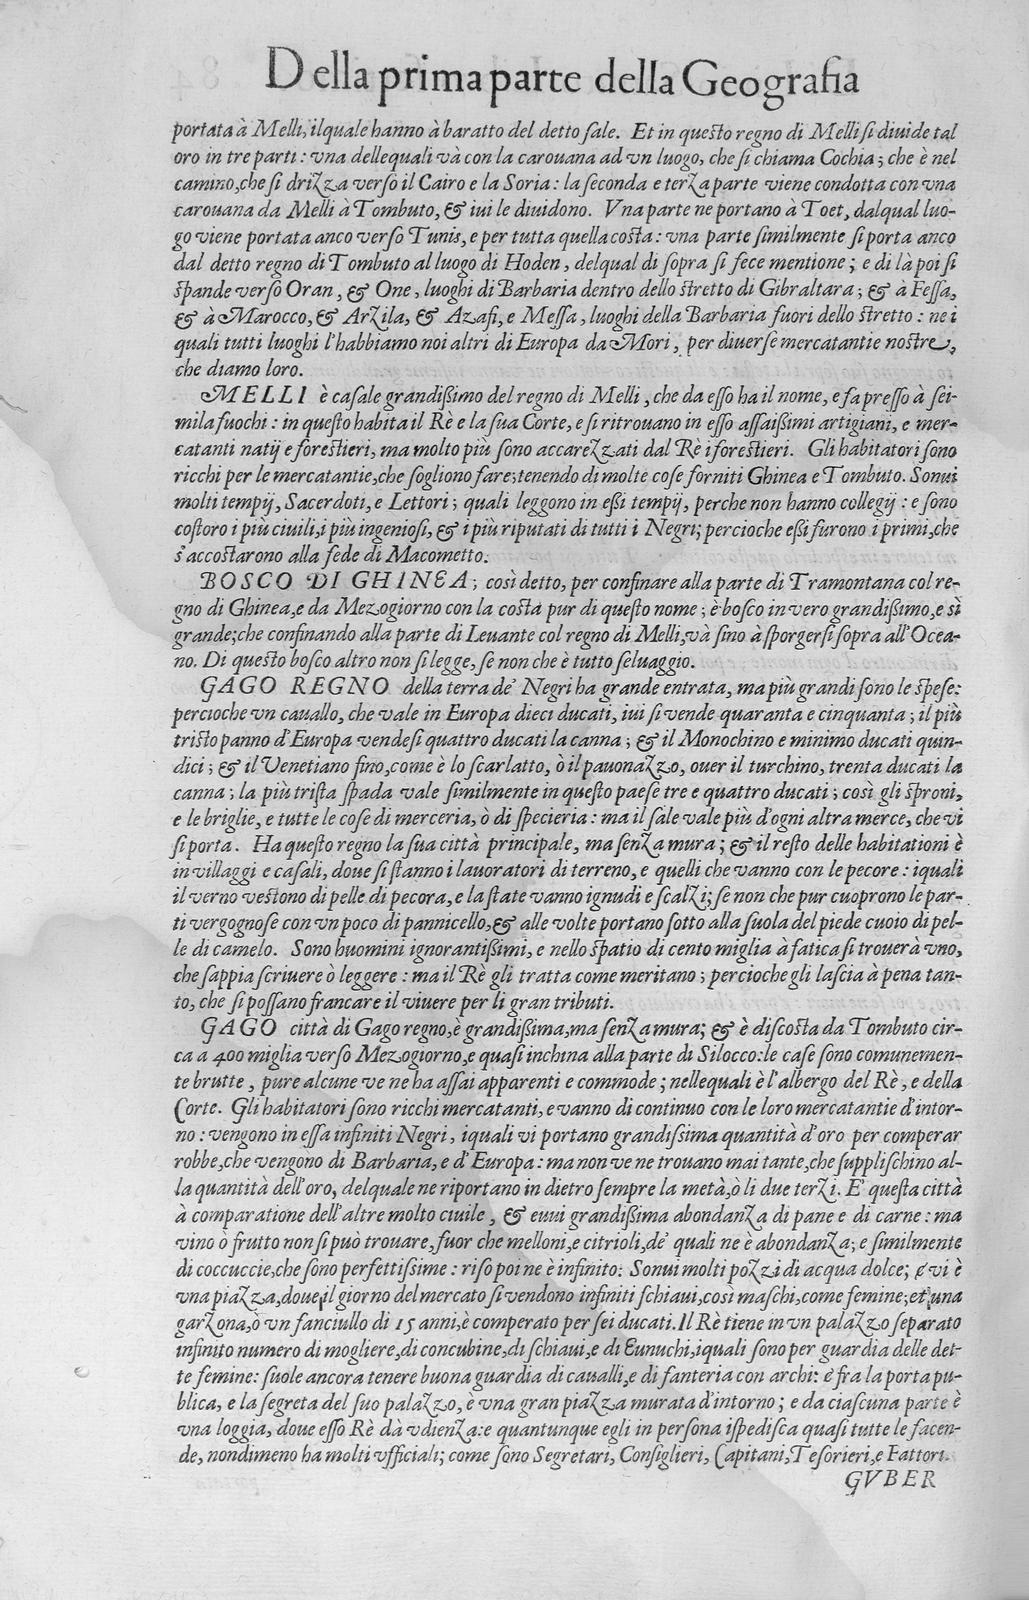 Della prima parte della Geografia
portata à Melli, ilquale hanno à baratto del detto sale. Et in questo regno di Melli si diuide tal
oro in tre parti: vna dellequali và con la carouana ad vn luogo, che si chiama Cochia; che è nel
camino, che si drizza verso il Cairo e la Soria: la seconda e terza parte viene condotta con vna
carouana da Melli à Tombuto, & iui le diuidono. Vna parte ne portano à Toet, dalqual luo-
go viene portata anco verso Tunis, e per tutta quella costa: vna parte similmente si porta anco
dal detto regno di Tombuto al luogo di Hoden, delqual di sopra si fece mentione; e di là poi si
spande verso Oran, & One, luoghi di Barbaria dentro dello stretto di Gibraltara; & à Fessa,
& à Marocco, & Arzila, & Azafi, e Messa, luoghi della Barbaria fuori dello stretto: ne i
quali tutti luoghi l'habbiamo noi altri di Europa da Mori, per diuerse mercatantie nostre,
che diamo loro.
MELLI è casale grandißimo del regno di Melli, che da esso ha il nome, e fa presso à sei-
mila fuochi: in questo habita il Rè e la sua Corte, e si ritrouano in esso assaißimi artigiani, e mer-
catanti natij e forestieri, ma molto più sono accarezzati dal Rè i forestieri. Gli habitatori sono
ricchi per le mercatantie, che sogliono fare; tenendo di molte cose forniti Ghinea e Tombuto. Sonui
molti tempij, Sacerdoti, e Lettori; quali leggono in eßi tempij, perche non hanno collegij: e sono
costoro i più ciuili, i più ingeniosi, & i più riputati di tutti i Negri; percioche eßi furono i primi, che
s'accostarono alla fede di Macometto.
BOSCO DI GHINEA; così detto, per confinare alla parte di Tramontana col re-
gno di Ghinea, e da Mezogiorno con la costa pur di questo nome; è bosco in vero grandißimo, e sì
grande; che confinando alla parte di Leuante col regno di Melli, và sino à sporgersi sopra all'Ocea-
no. Di questo bosco altro non si legge, se non che è tutto seluaggio.
GAGO REGNO della terra de' Negri ha grande entrata, ma più grandi sono le spese:
percioche vn cauallo, che vale in Europa dieci ducati, iui si vende quaranta e cinquanta; il più
tristo panno d'Europa vendesi quattro ducati la canna; & il Monochino e minimo ducati quin-
dici; & il Venetiano fino, come è lo scarlatto, ò il pauonazzo, ouer il turchino, trenta ducati la
canna; la più trista spada vale similmente in questo paese tre e quattro ducati; così gli sproni,
e le briglie, e tutte le cose di merceria, ò di specieria: ma il sale vale più d'ogni altra merce, che vi
si porta. Ha questo regno la sua città principale, ma senza mura; & il resto delle habitationi è
in villaggi e casali, doue si stanno i lauoratori di terreno, e quelli che vanno con le pecore: iquali
il verno vestono di pelle di pecora, e la state vanno ignudi e scalzi; se non che pur cuoprono le par-
ti vergognose con vn poco di pannicello, & alle volte portano sotto alla suola del piede cuoio di pel-
le di camelo. Sono huomini ignorantißimi, e nello spatio di cento miglia à fatica si trouerà vno,
che sappia scriuere ò leggere: ma il Rè gli tratta come meritano; percioche gli lascia à pena tan-
to, che si possano francare il viuere per li gran tributi.
GAGO città di Gago regno, è grandißima, ma senza mura; & è discosta da Tombuto cir-
ca a 400 miglia verso Mezogiorno, e quasi inchina alla parte di Silocco: le case sono comunemen-
te brutte, pure alcune ve ne ha assai apparenti e commode; nellequali è l'albergo del Rè, e della
Corte. Gli habitatori sono ricchi mercatanti, e vanno di continuo con le loro mercatantie d'intor-
no: vengono in essa infiniti Negri, iquali vi portano grandissima quantità d'oro per comperar
robbe, che vengono di Barbaria, e d'Europa: ma non ve ne trouano mai tante, che supplischino al-
la quantità dell'oro, delquale ne riportano in dietro sempre la metà, ò li due terzi. E' questa città
à comparatione dell'altre molto ciuile, & euui grandißima abondanza di pane e di carne: ma
vino ò frutto non si può trouare, fuor che melloni, e citrioli, de' quali ne è abondanza; e similmente
di coccuccie, che sono perfettissime: riso poi ne è infinito: Sonui molti pozzi di acqua dolce; & vi è
vna piazza, doue il giorno del mercato si vendono infiniti schiaui, così maschi, come femine; et una
garzona, ò vn fanciullo di 15 anni, è comperato per sei ducati. Il Rè tiene in vn palazzo separato
infinito numero di mogliere, di concubine, di schiaui, e di Eunuchi, iquali sono per guardia delle det-
te femine: suole ancora tenere buona guardia di caualli, e di fanteria con archi: & fra la porta pu-
blica, e la segreta del suo palazzo, è vna gran piazza murata d'intorno; e da ciascuna parte è
vna loggia, doue esso Rè dà vdienza: e quantunque egli in persona ispedisca quasi tutte le facen-
de, nondimeno ha molti vfficiali; come sono Segretari, Consiglieri, Capitani, Tesorieri, e Fattori.
GVBER